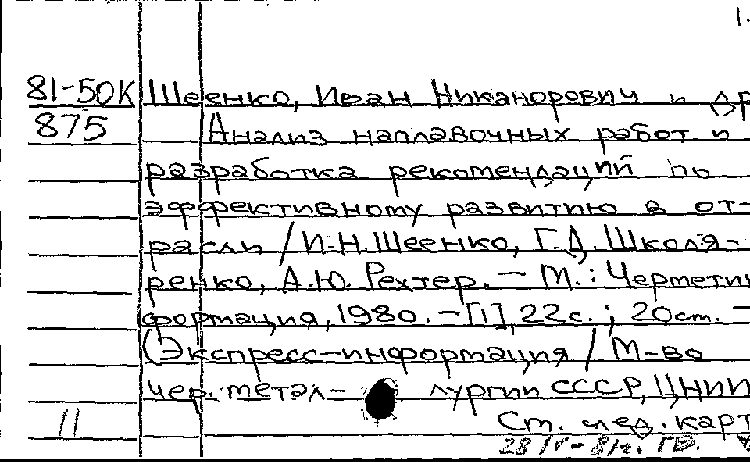 1.
81-50К Шеенко, Иван Никанорович и др
875 Анализ наплавочных работ и
разработка рекомендаций по
эффективному развитию в от-
расли / И.Н. Шеенко, Г.Д. Школя-
ренко, А.Ю. Рехтер. – М.: Черметин
формация, 1980. – [1], 22 с.; 20 см. –
(Экспресс-информация / М-во
чер. метал- лургии СССР, ЦНИИ
11 Ст. след. карт
28/V-81г. ГВ.